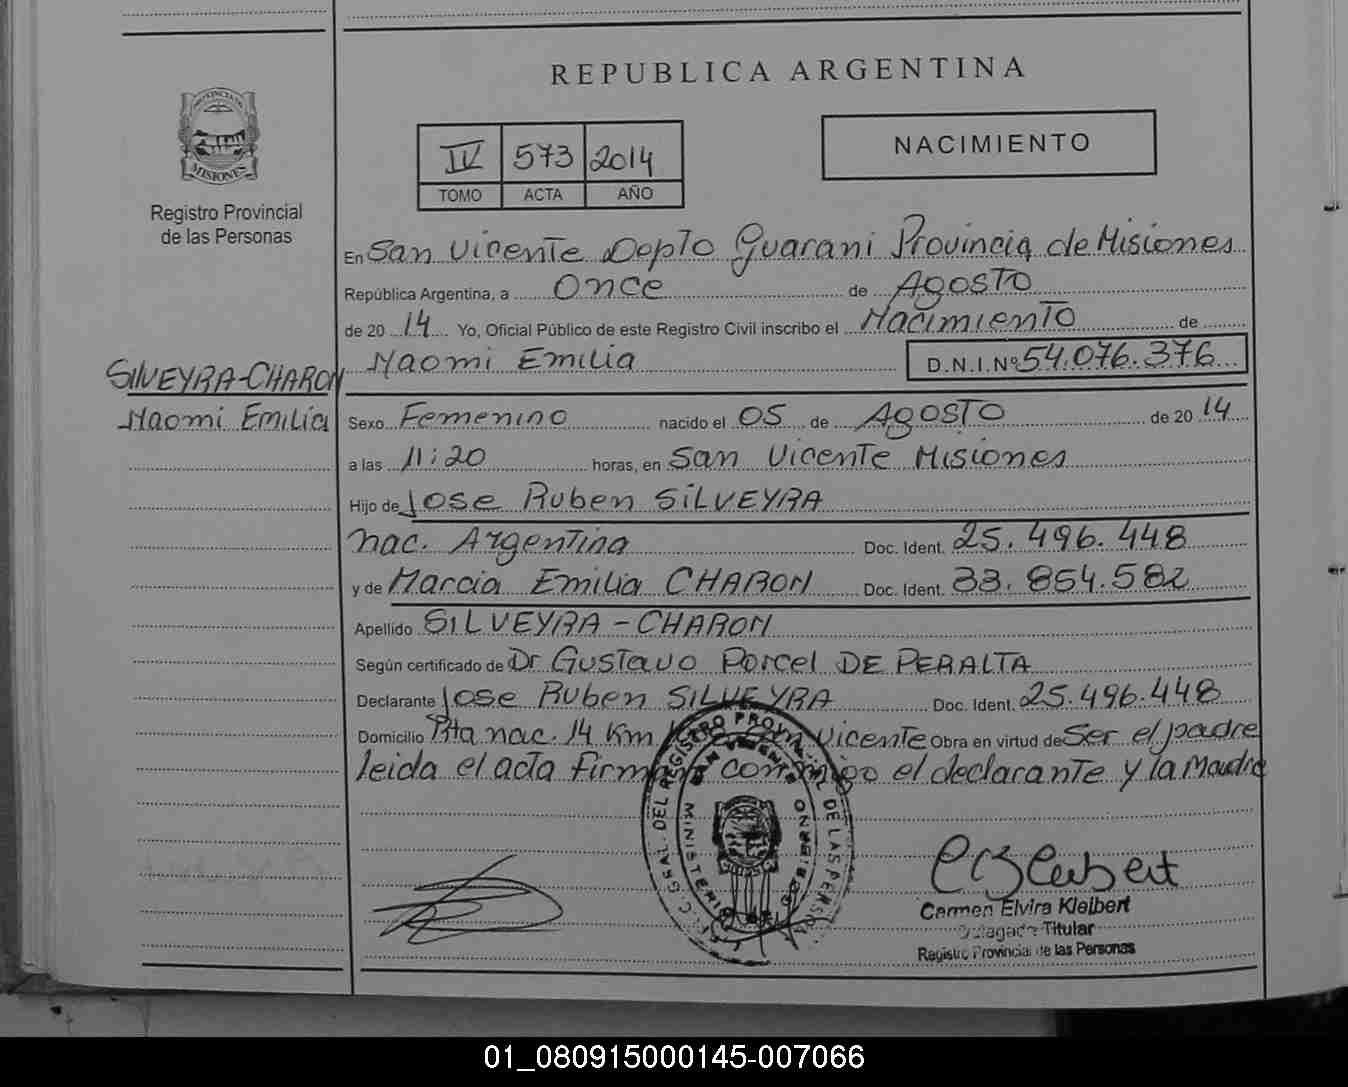 REPUBLICA ARGENTINA
PROVINCIA DE
MISIONES
Registro Provincial
de las Personas
IV 573 2014
TOMO ACTA AÑO
NACIMIENTO
En San Vicente Depto Guarani Provincia de Misiones
República Argentina, a Once de Agosto
de 20 14 Yo, Oficial Público de este Registro Civil inscribo el Nacimiento de
Naomi Emilia D.N.I.Nº 54.076.376
SILVEYRA-CHARON
Naomi Emilia
Sexo Femenino nacido el 05 de Agosto de 20 14
a las 11:20 horas, en San Vicente Misiones
Hijo de Jose Ruben SILVEYRA
nac. Argentina Doc. Ident. 25.496.448
y de Marcia Emilia CHARON Doc. Ident. 33.854.582
Apellido SILVEYRA-CHARON
Según certificado de Dr Gustavo Porcel DE PERALTA
Declarante Jose Ruben SILVEYRA Doc. Ident. 25.496.448
Domicilio Rta nac. 14 Km San Vicente Obra en virtud de Ser el padre
leida el acta firman conmigo el declarante y la Madre
GRAL. DEL REGISTRO PROVINCIAL DE LAS PERSONAS
MINISTERIO DE GOBIERNO
SAN VICENTE
Carmen Elvira Kleibert
Delegada Titular
Registro Provincial de las Personas
01_080915000145-007066